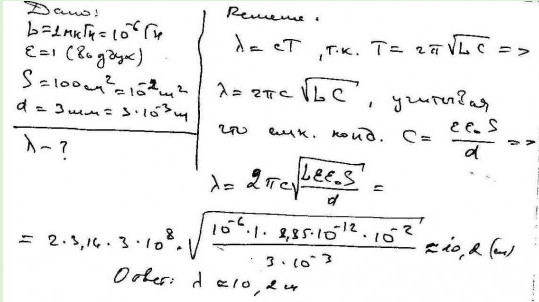 Дано:
L=1мкГн=10⁻⁶Гн
ε=1 (воздух)
S=100см²=10⁻²м²
d=3мм=3·10⁻³м
λ-?
Решение.
λ=cT, т.к. T=2π√LC =>
λ=2πc√LC, учитывая
что емк. конд. C= εε₀S/d =>
λ=2πc√(Lεε₀S/d) =
= 2·3,14·3·10⁸·√(10⁻⁶·1·8,85·10⁻¹²·10⁻²/3·10⁻³) ≈10,2 (м)
Ответ: λ≈10,2м